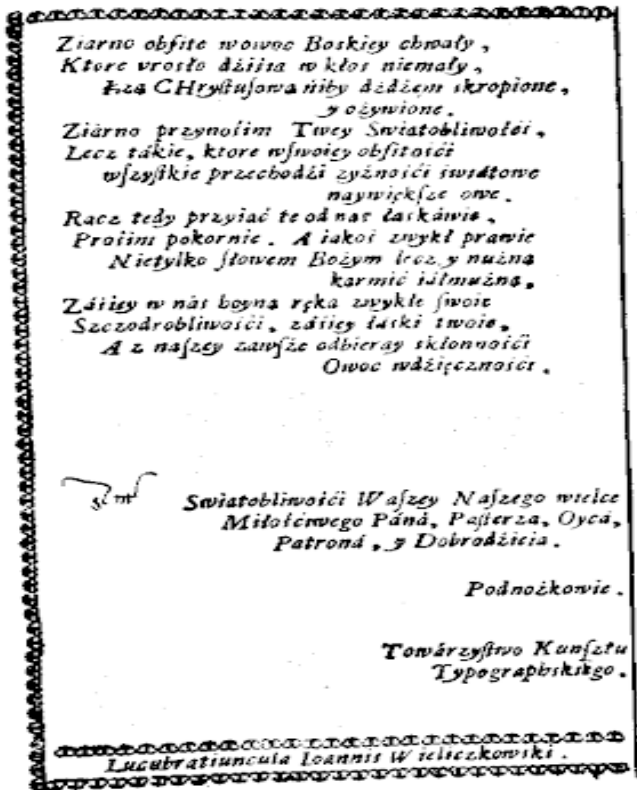 Ziarno obfite wowoc Boskiey chwały,
Ktore vrosło dźiśia w kłos niemały,
Łzą CHrystusową niby dżdżem skropione,
y ożywione.
Ziárno przynośim Twey Swiatobliwośći,
Lecz tákie, ktore wſwoiey obfitośći
wſzyſtkie przechodźi żyżnośći świátowe
naywiękſze owe.
Racz tedy przyiać te od nas łaskáwie,
Prośim pokornie. A iakoś zwykł prawie
Nietylko ſłowem Bożym lecz y nużną
karmić iáłmużną,
Záśiey w nas hoyną ręka zwykłe ſwoie
Szczodrobliwośći, záśiey łáski twoie,
A z naſzey zawſże odbieray skłonnośći
Owoc wdźięcznośći.
Swiatobliwośći Waſzey Naſzego wielce
Miłośćiwego Páná, Paſterza, Oycá,
Patroná, y Dobrodźieia.
Podnożkowie.
Towárzyſtwo Kunſztu
Typographskiego.
Lucubratiuncula Ioannis Wieliczkowski.